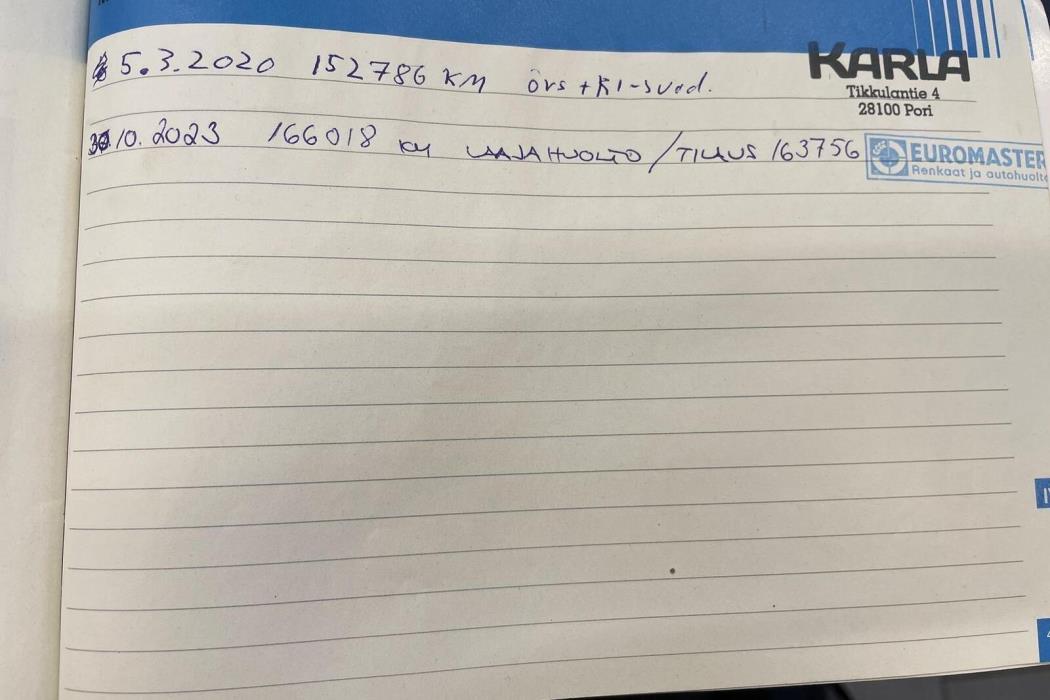 5.3.2020 152786 KM övs + RI-suod.
KARLA
Tikkulantie 4
28100 Pori
30.10.2023 166018 KM LAAJA HUOLTO / TILAUS 163756
EUROMASTER
Renkaat ja autohuolto